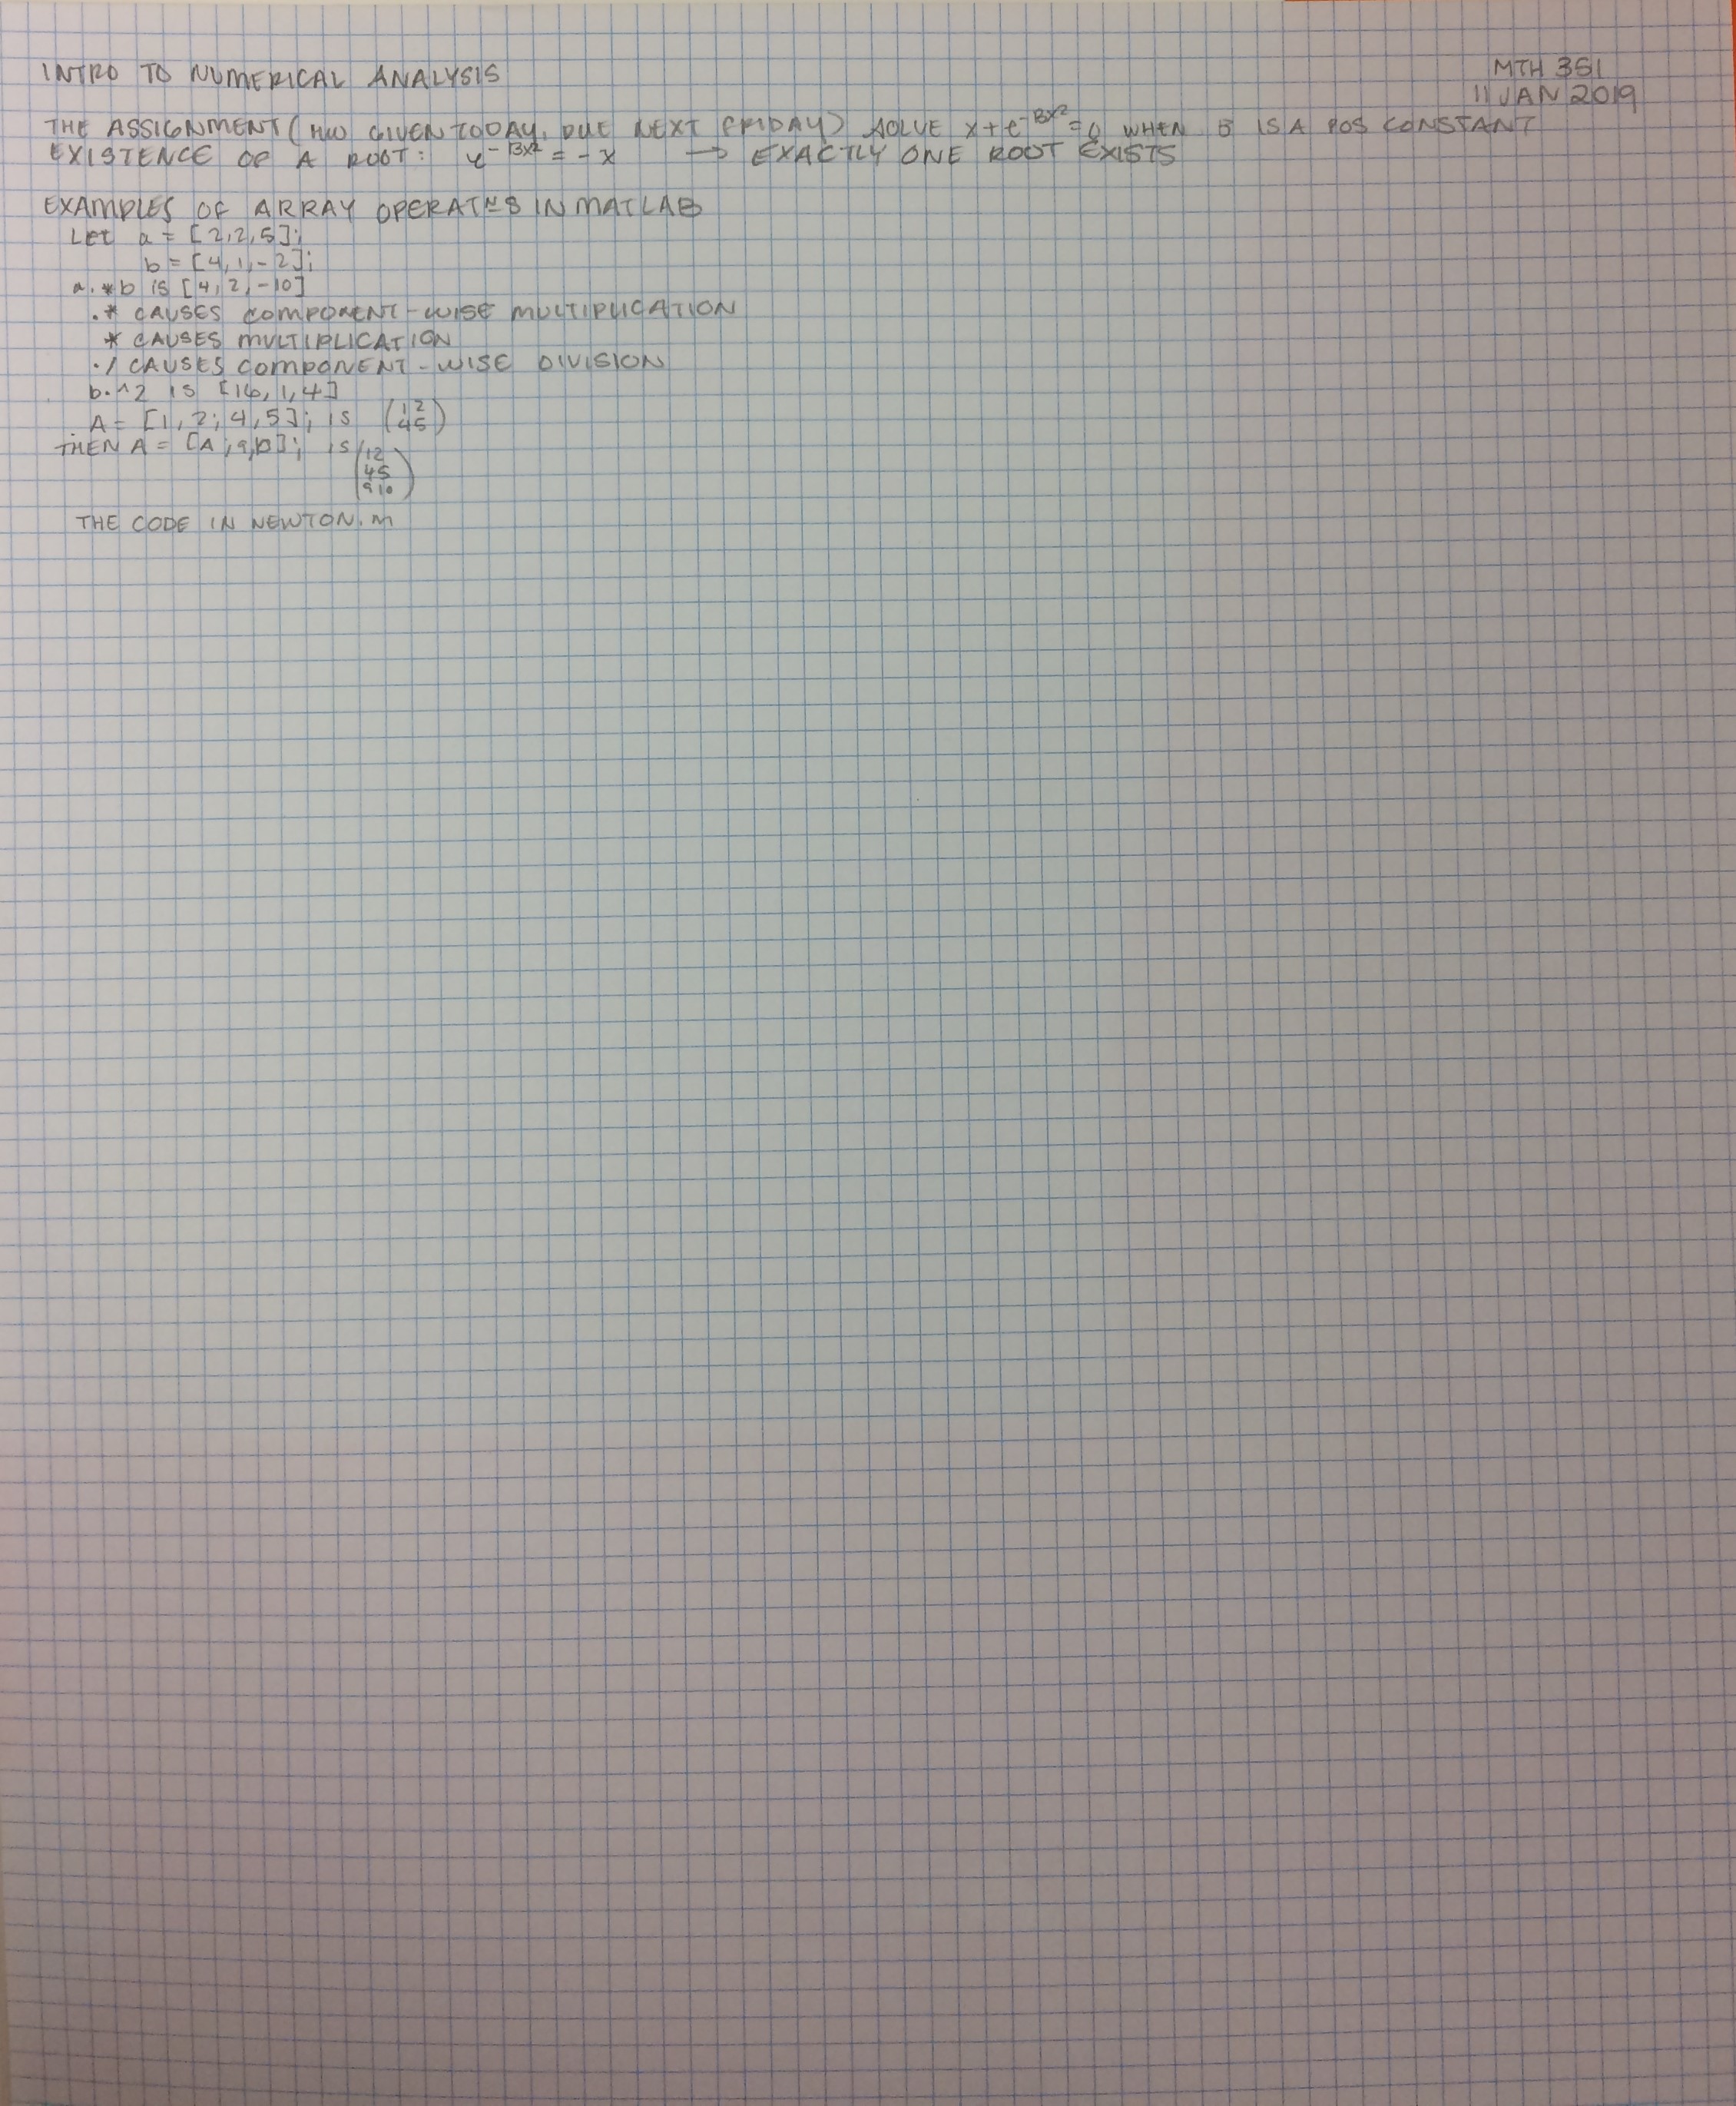 INTRO TO NUMERICAL ANALYSIS
MTH 351
11 JAN 2019
THE ASSIGNMENT (HW GIVEN TODAY, DUE NEXT FRIDAY) SOLVE x+e^-Bx²=0 WHEN B IS A POS CONSTANT
EXISTENCE OF A ROOT: e^-Bx² = -x → EXACTLY ONE ROOT EXISTS
EXAMPLES OF ARRAY OPERATNS IN MATLAB
LET a = [2,2,5];
b = [4,1,-2];
a.*b is [4,2,-10]
.* CAUSES COMPONENT-WISE MULTIPLICATION
* CAUSES MULTIPLICATION
./ CAUSES COMPONENT-WISE DIVISION
b.^2 is [16,1,4]
A = [1,2;4,5]; is (1 2
4 5)
THEN A = [A;9,10]; is (1 2
4 5
9 10)
THE CODE IN NEWTON.m